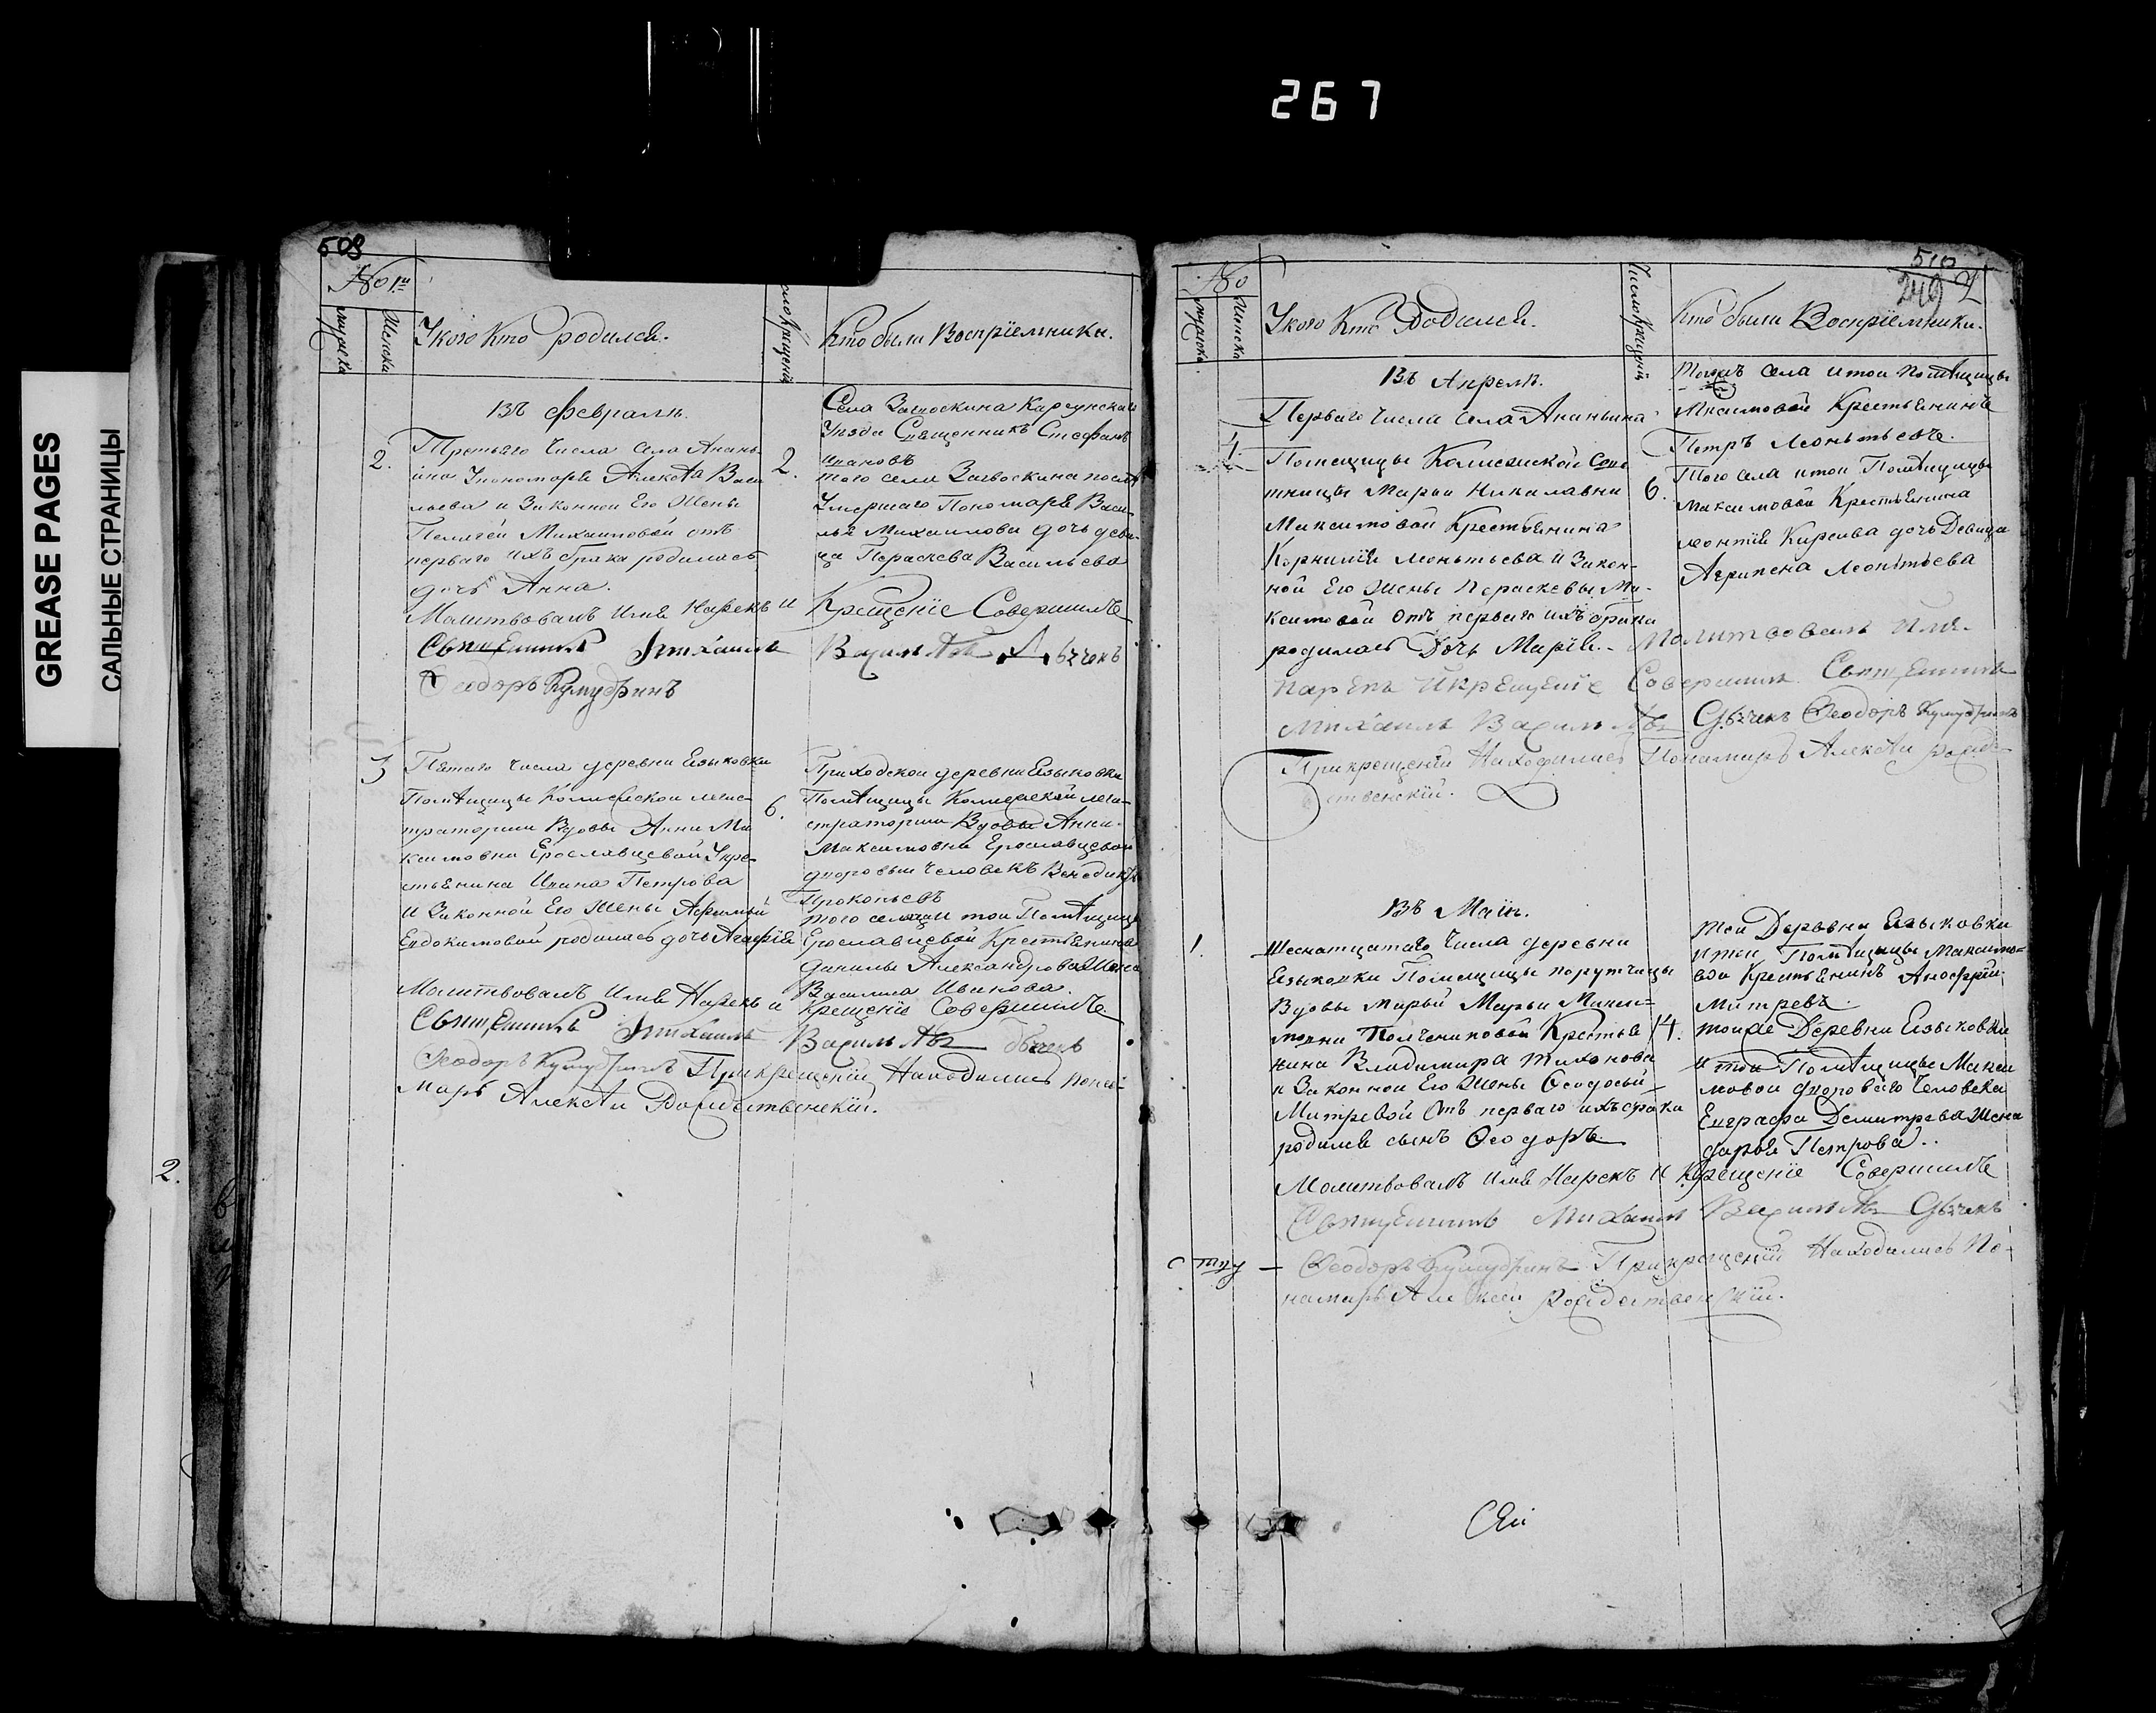 267
GREASE PAGES
САЛЬНЫЕ СТРАНИЦЫ
2.
509
No 1й
мужеска
Женска
У кого Кто родился.
Кто были Воспріемники.
Въ Февралѣ.
2.
Третьяго Числа Села Анань-
ина У пономаря Алексѣя Васи
льева и Законной Его Жены
Пелагеи Михаиловой отъ
перваго ихъ брака родилась
дочь Анна.
2.
Села Загвоскина Карсунскаго
Уѣзда Священникъ Стефанъ
Ивановъ
того села Загвоскина послѣ
Умершаго Пономаря Васи-
лья Михаилова дочь деви-
ца Пераскева Васильева
Молитвовалъ Имя Нарекъ и Крещеніе Совершилъ
Священникъ Михаилъ
Феодоръ
3
Пятаго Числа деревни Езыковки
Помѣщицы Колежской Регис-
траторши Вдовы Анны Ма
ксимовны Ерославцевой У кре-
стьянина Ивана Петрова
И Законной Его Жены
Евдокимовой родилась дочь Агафія
6.
Приходской деревни Езыковки
Помѣщицы Колежской Реги-
страторши Вдовы Анны
Максимовны Ерославцевой
дворовый Человекъ Венедиктъ
Прокопьевъ
того села и той Помѣщицы
Ерославцевой Крестьянина
Данилы Александрова Жена
Василиса Иванова.
Молитвовалъ Имя Нарекъ и Крещеніе Совершилъ
Священникъ Михаилъ
Феодоръ При крещеніи Находились Поно-
марь Алексѣй Рождественскій.
510
249
No
мужеска
Женска
У кого Кто Родился.
Число Крещеній
Кто были Воспріемники.
Въ Апрелѣ.
4.
Перваго Числа Села Ананьина
Помещицы Колежской Сове
тницы Марьи Николавны
Максимовой Крестьянина
Корнилія Леонтьева и Закон-
ной Его Жены Пераскевы Ма-
ксимовой отъ перваго ихъ брака
родилась Дочь Марія.
6.
Тогожъ Села и той Помѣщицы
Максимовой Крестьянинъ
Петръ Леонтьевъ.
Того Села и той Помѣщицы
Максимовой Крестьянина
Леонтія Карпова дочь Девица
Агрипена Леонтьева
Молитвовалъ Имя
Нарекъ И крещеніе Совершилъ Священникъ
Михаилъ Феодоръ
При крещеніи Находились Понамарь Алексѣй Рожде-
ственскій.
Въ Маіи.
1.
Шеснатцатаго Числа деревни
Езыковки Помещицы порутчицы
Вдовы Марьи Марьи Макси-
мовны Крестья
нина Владимира Тихонова
и Законной Его Жены Феодосьи
Митревой Отъ перваго ихъ брака
родился сынъ Феодоръ.
14.
Той Деревни Езыковки
и той Помѣщицы Максимо-
вой Крестьянинъ
Митревъ.
той же Деревни Езыковки
и той Помѣщицы Макси
мовой дворового Человека
Евграфа Демитрева Жена
Дарья Петрова.
Молитвовалъ Имя Нарекъ и Крещеніе Совершилъ
Священникъ Михаилъ
Феодоръ При крещеніи Находились По-
намарь Алексѣй Рождественскій.